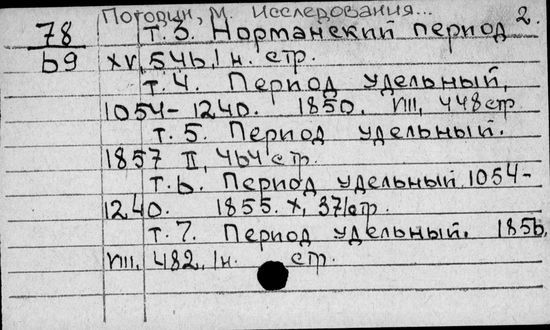 Погодин, М. Исследования...
2.
78 т. 3. Норманский период
69 XV, 546, 1 н. стр.
т. 4. Период удельный,
1054-1240. 1850. VIII, 448 стр
т. 5. Период удельный.
1857 II, 464 стр.
т. 6. Период удельный 1054-
1240. 1855. X, 371 стр.
т. 7. Период удельный. 1856.
VIII, 482, 1 н. стр.